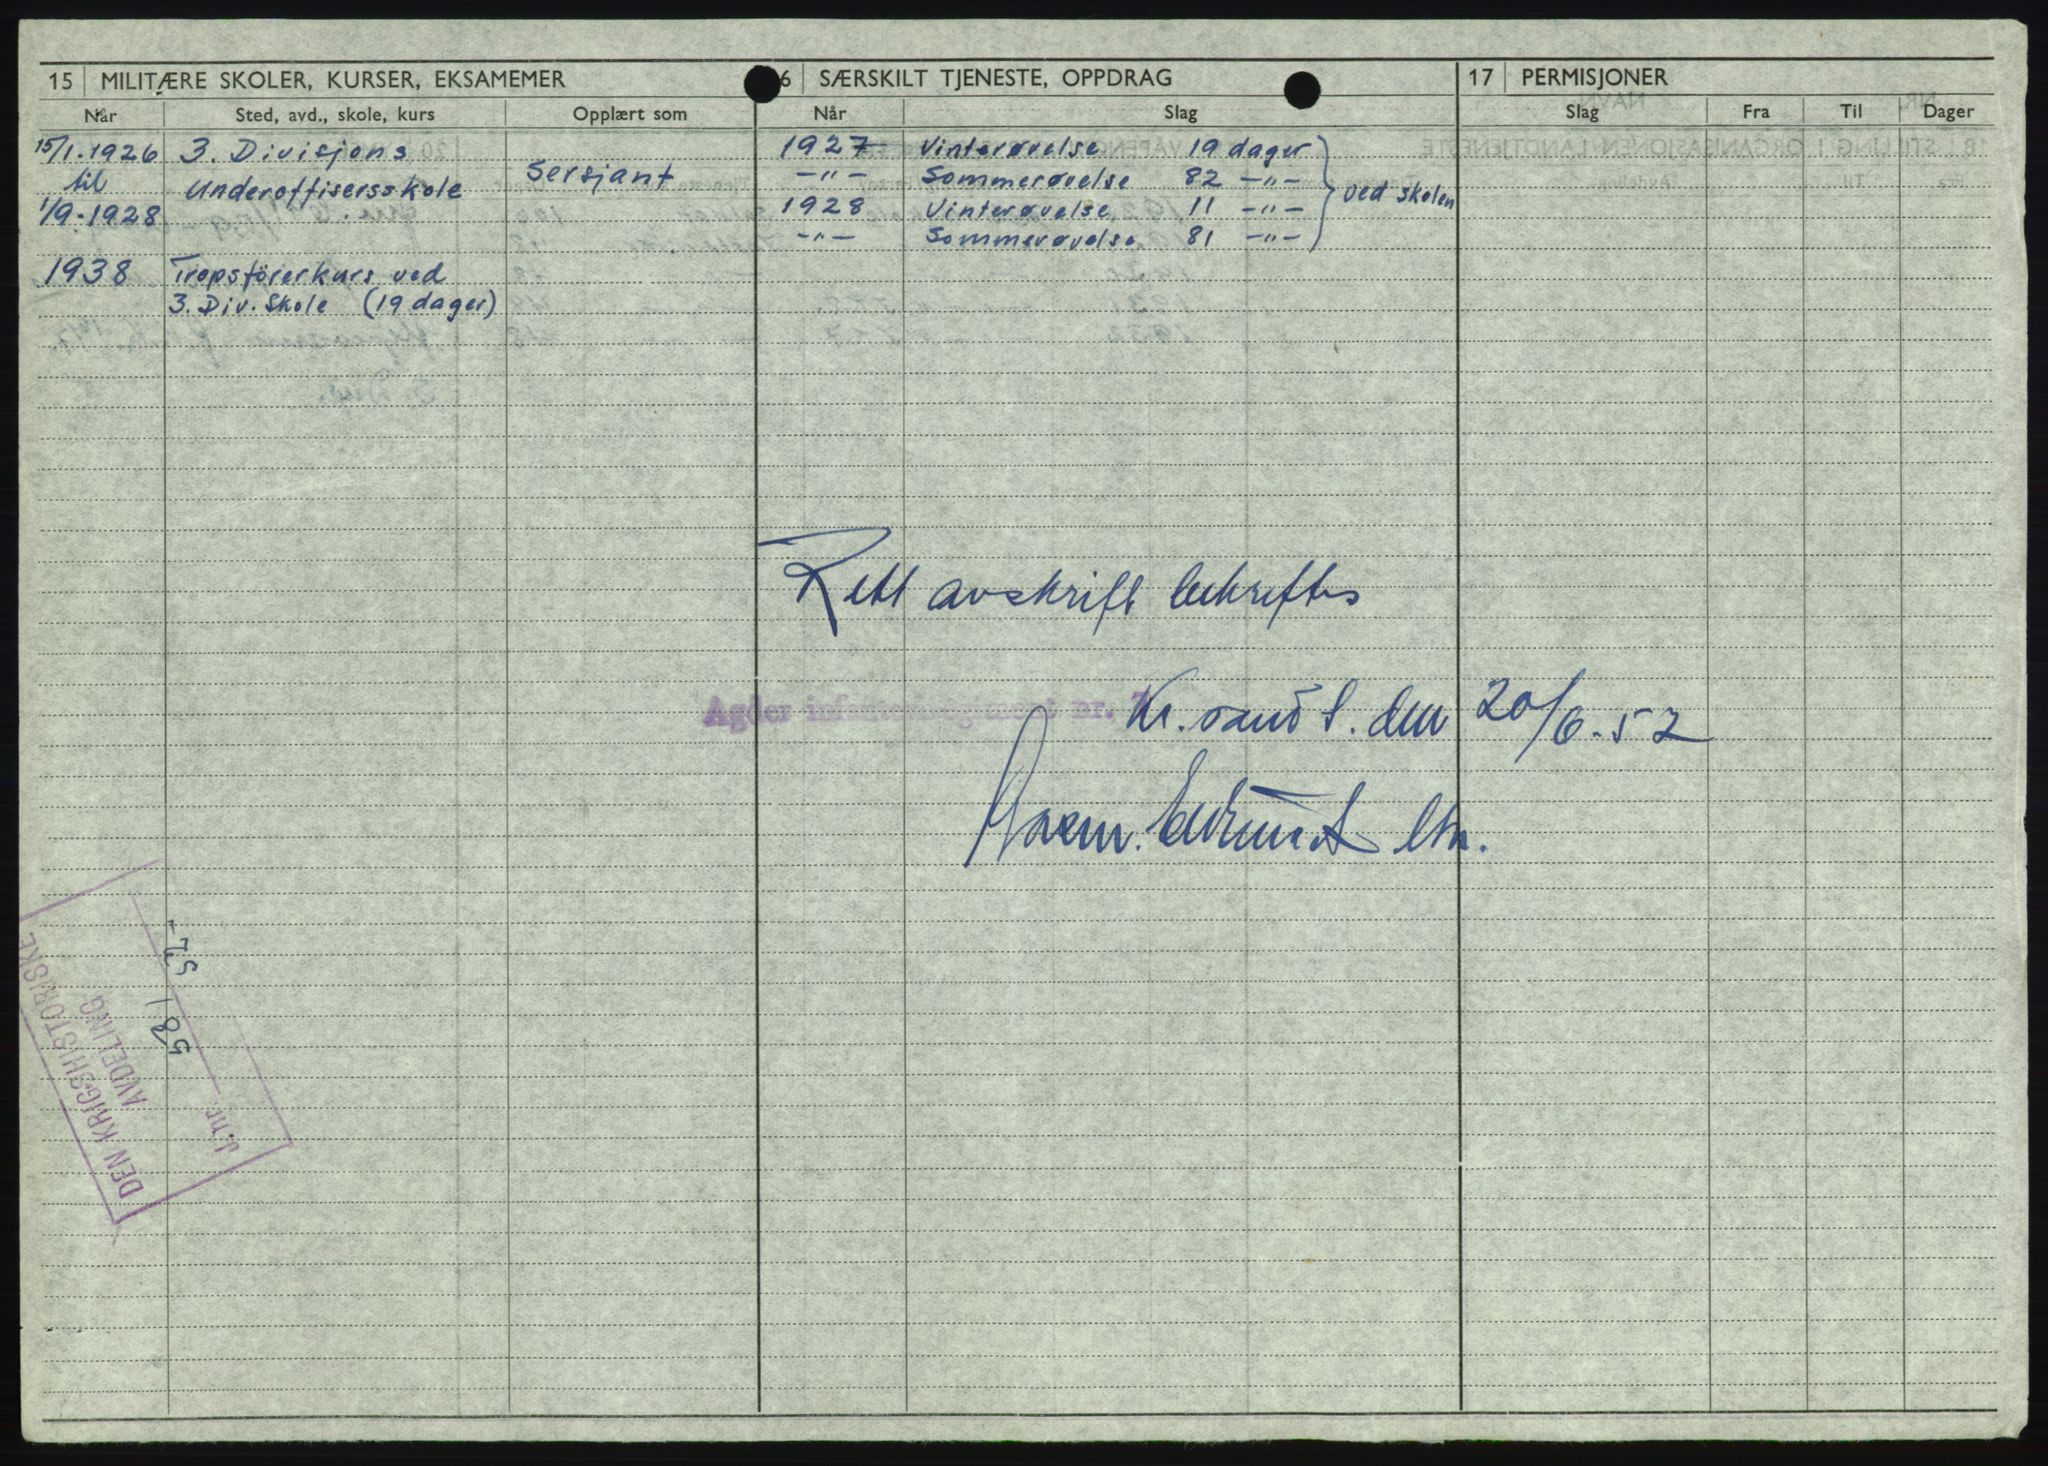 15 MILITÆRE SKOLER, KURSER, EKSAMEMER
Når Sted, avd., skole, kurs Opplært som
15/1.1926 3. Divisjons
til Underoffisersskole Sersjant
1/9.1928
1938 Tropsførerkurs ved
3. Div. Skole (19 dager)
6 SÆRSKILT TJENESTE, OPPDRAG
Når Slag
1927 Vinterøvelse 19 dager
-"- Sommerøvelse 82 -"-
ved skolen
1928 Vinterøvelse 11 -"-
-"- Sommerøvelse 81 -"-
17 PERMISJONER
Slag Fra Til Dager
Rett avskrift bekreftes
Agder infanteriregiment nr. 7
Kr.sand S. den 20/6.52
DEN KRIGSHISTORISKE
AVDELING
J.nr. 581 52-